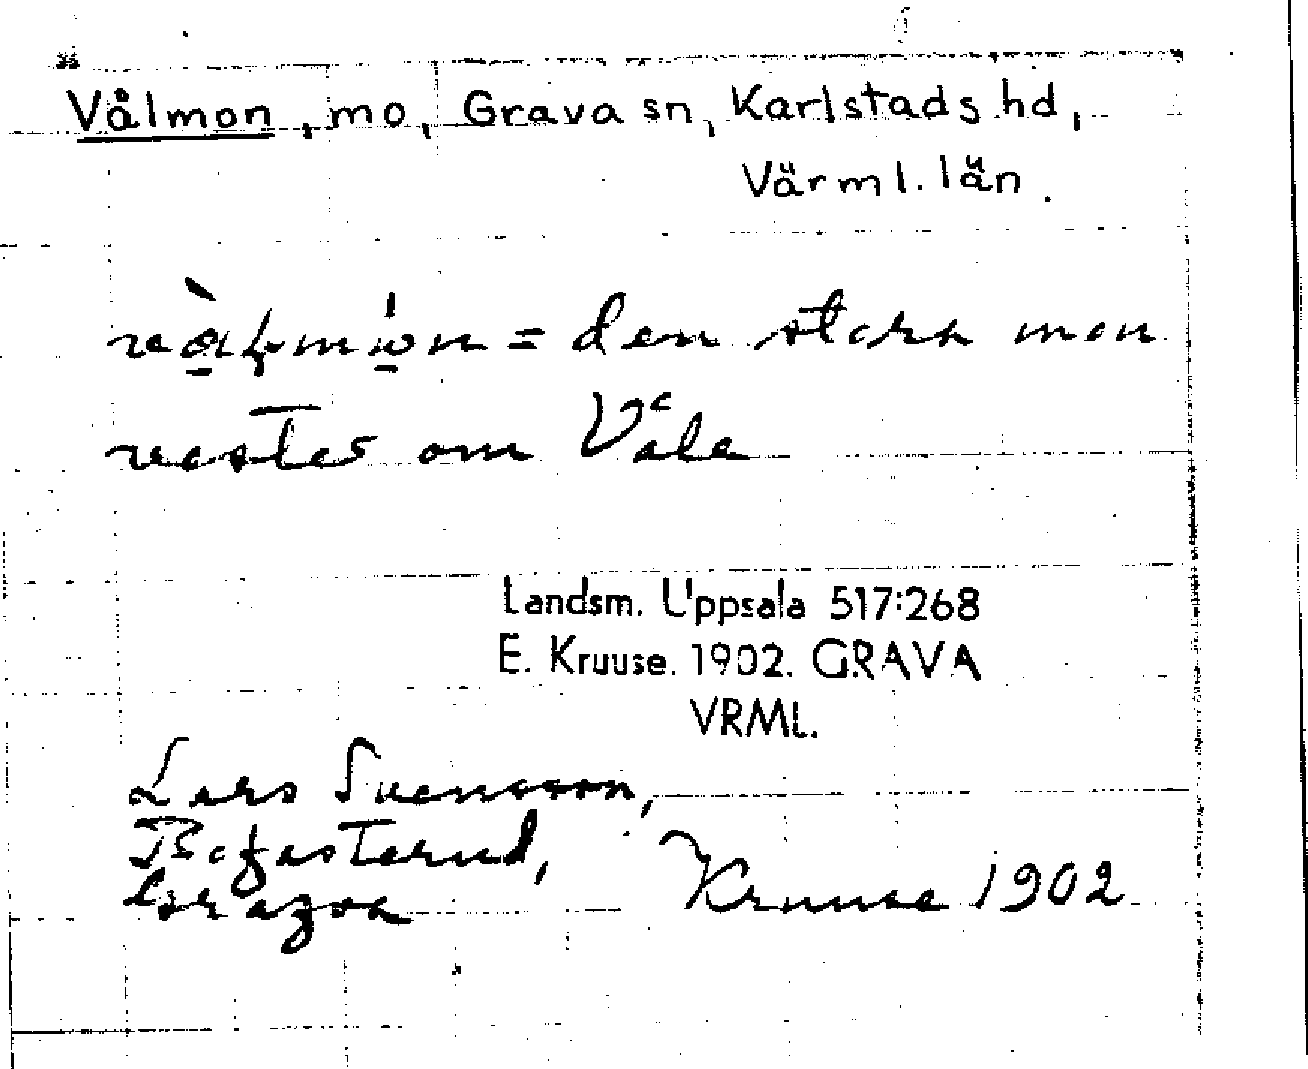 Vålmon, mo, Grava sn, Karlstads hd,
Värml. län.
= den stora mon
vester om Våla
Landsm. Uppsala 517:268
E. Kruuse. 1902. GRAVA
VRML.
Lars Svensson,
Kruuse 1902